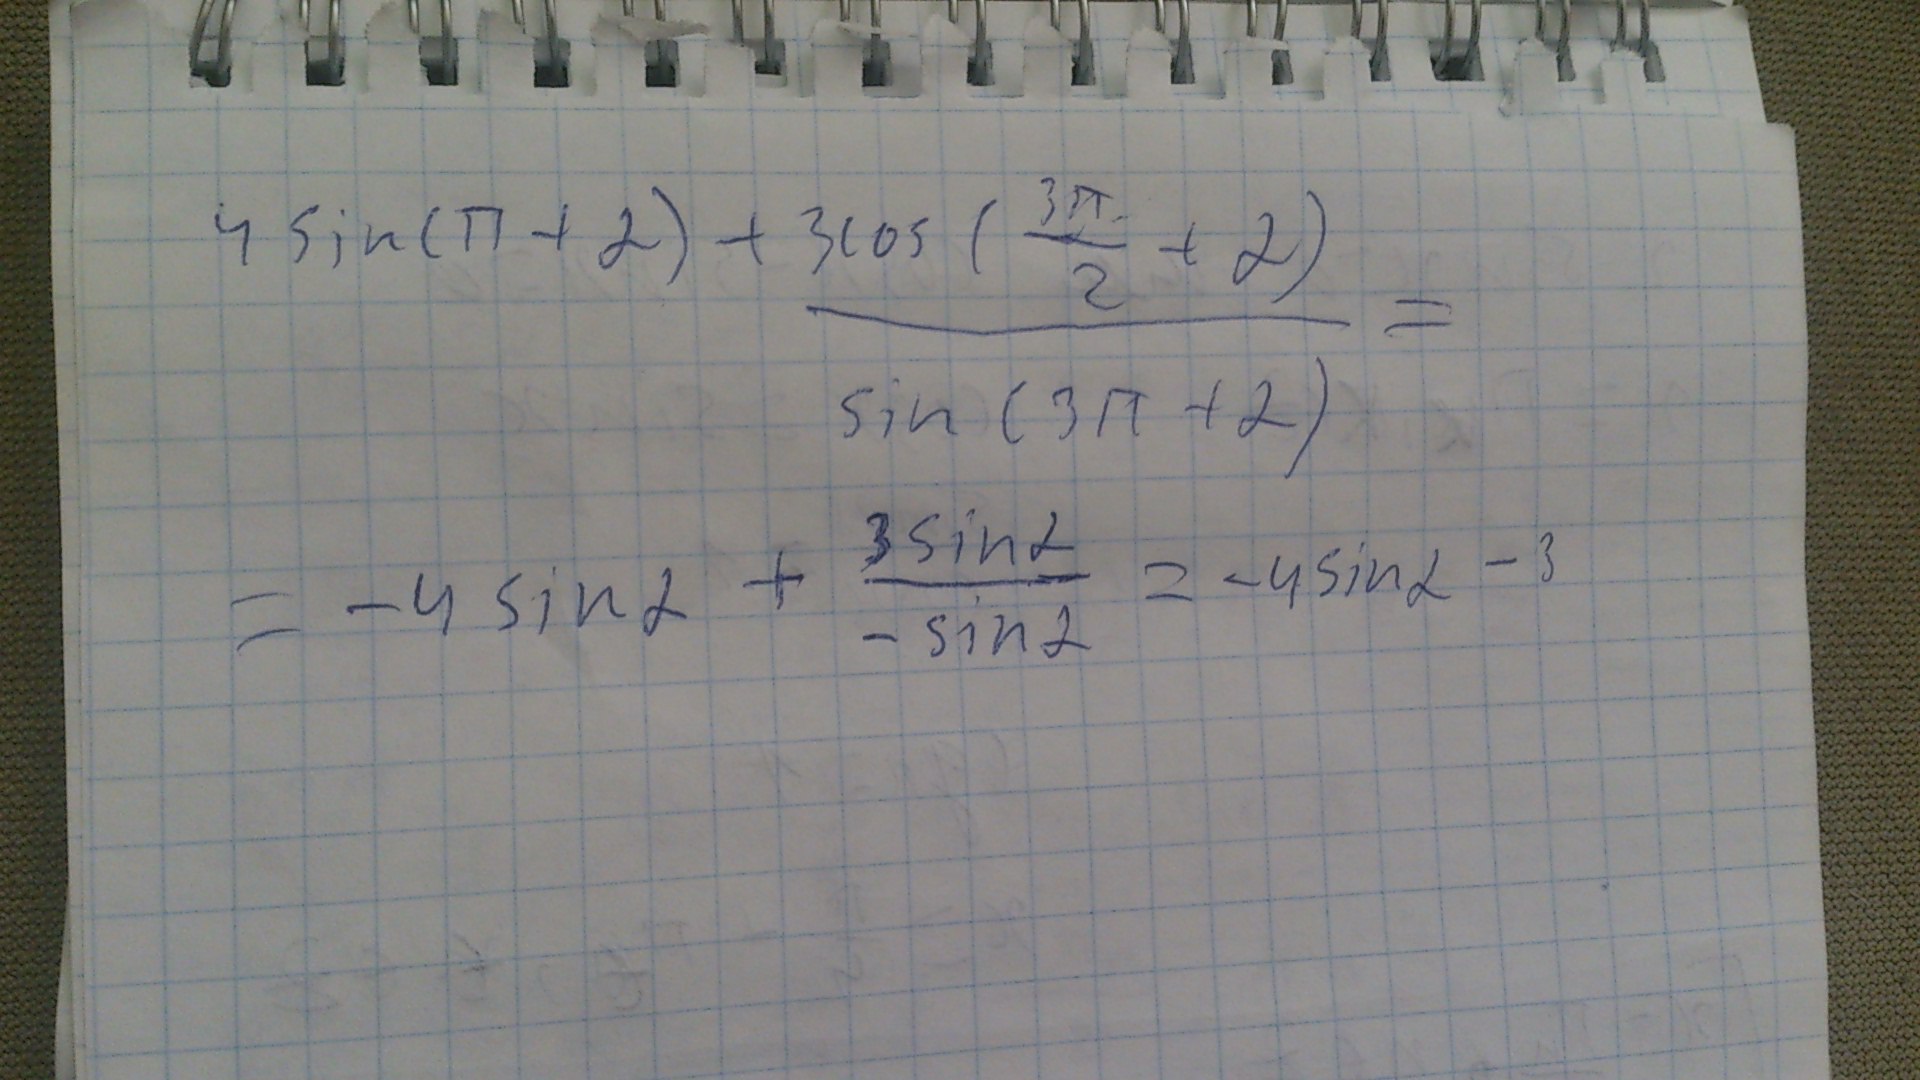 4 sin(π + α) + 3cos (3π/2 + α) =
sin (3π + α)
= -4 sin α + 3 sin α / - sin α = -4 sin α - 3